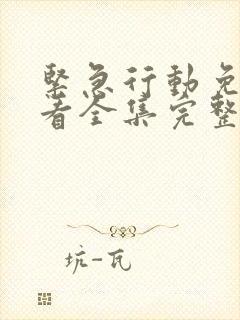 緊急行動免
看全集完整
坑-瓦